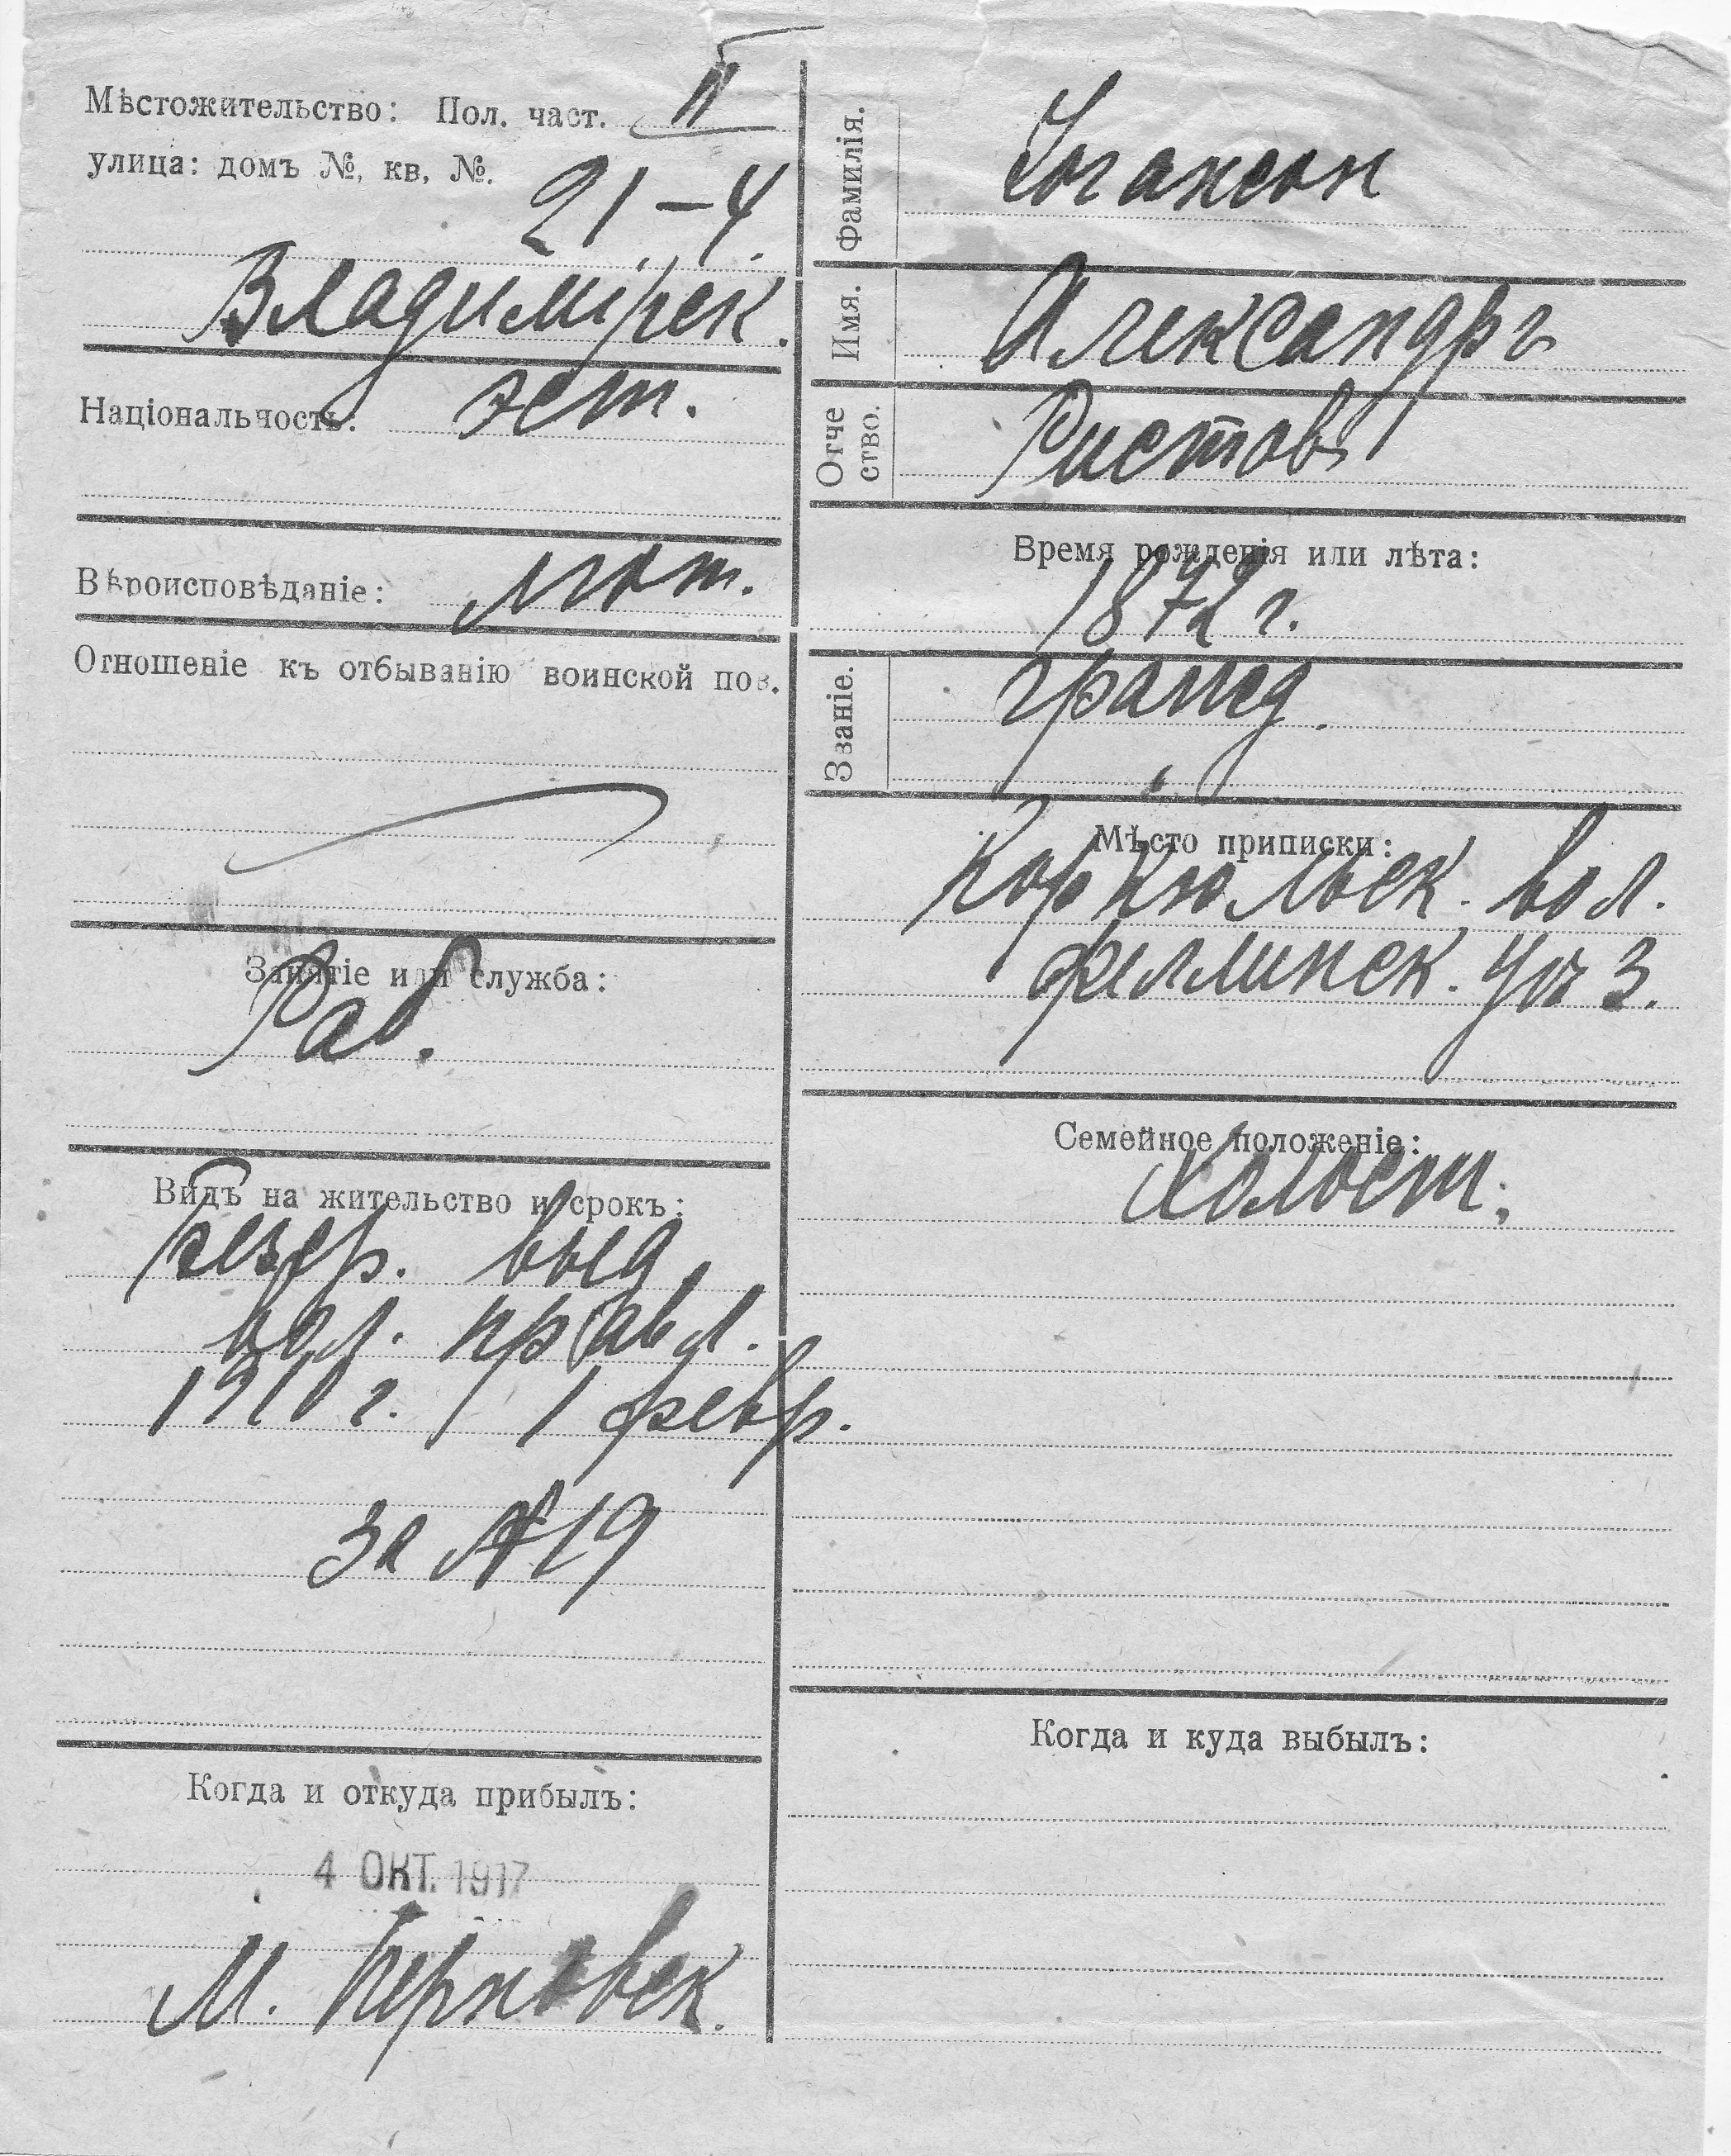 Мѣстожительство: Пол. част. II
улица: домъ №, кв, №.
21–4.
Владимірск.
Національность: эст.
Вѣроисповѣданіе: лют.
Отношеніе къ отбыванію воинской пов.
Занятіе или служба:
Раб.
Видъ на жительство и срокъ:
безср. выд.
вол. правл.
1910 г. 1 февр.
за № 19
Когда и откуда прибылъ:
4 ОКТ. 1917
М. Перновск.
Фамилія. Югансон
Имя. Александръ
Отчество. Ристовъ
Время рожденія или лѣта:
1872 г.
Званіе. гражд.
Мѣсто приписки:
Коркюльск. вол.
Феллинск. уѣз.
Семейное положеніе:
Холост.
Когда и куда выбылъ: